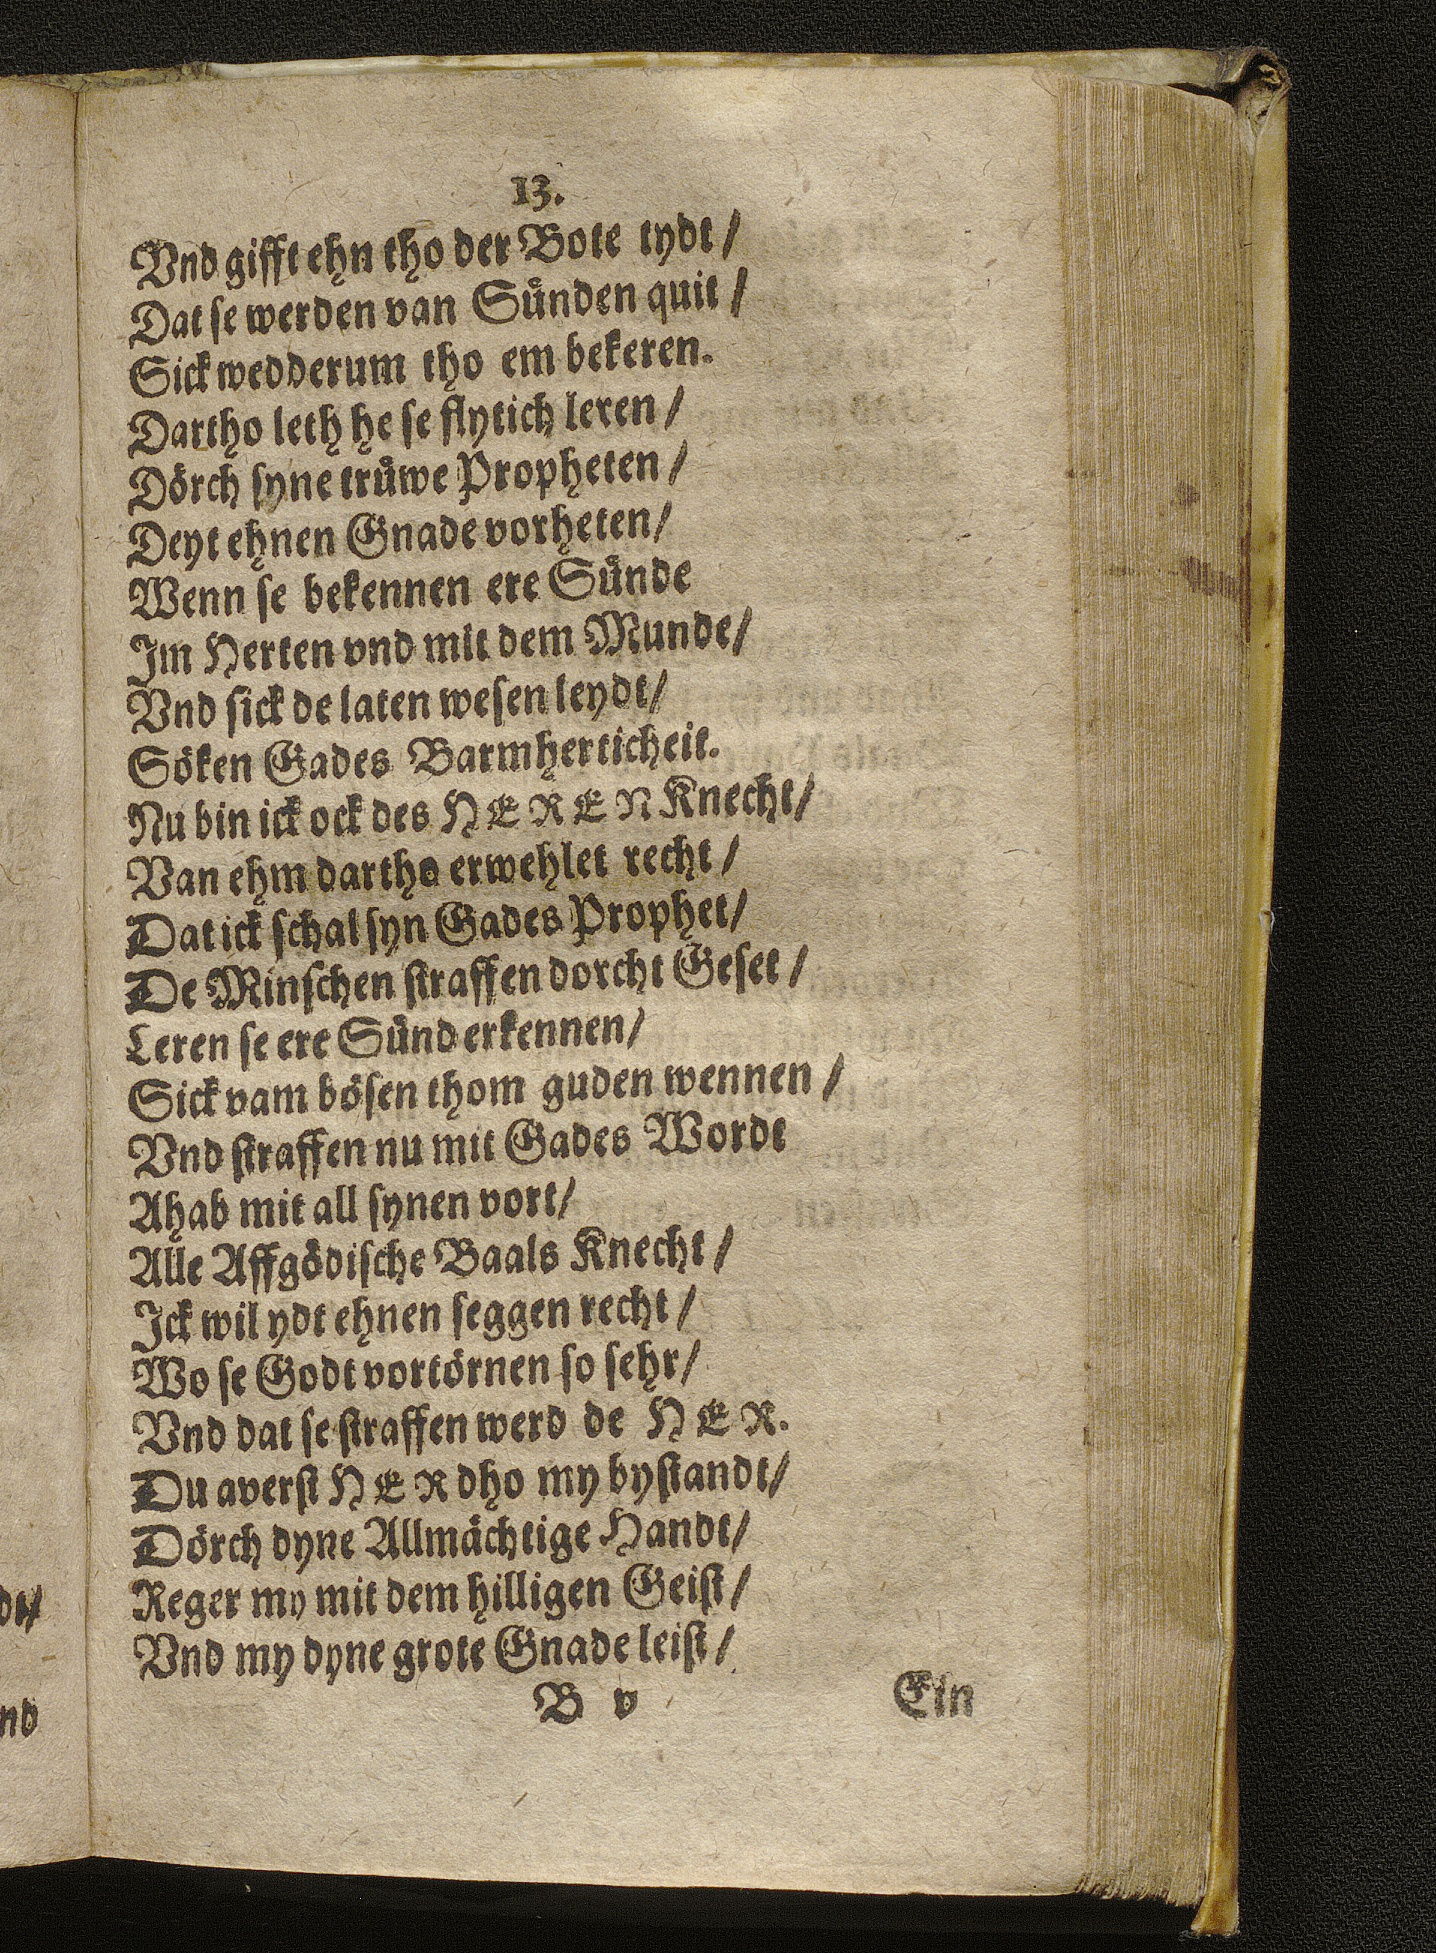 13.
Vnd gifft ehn tho der Bote tydt /
Dat se werden van Sünden quit /
Sick wedderum tho em bekeren.
Dartho leth he se flytich leren /
Dörch syne trüwe Propheten /
Deyt ehnen Gnade vorheten /
Wenn se bekennen ere Sünde
Im Herten vnd mit dem Munde /
Vnd sick de laten wesen leydt /
Söken Gades Barmherticheit.
Nu bin ick ock des HEREN Knecht /
Van ehm dartho erwehlet recht /
Dat ick schal syn Gades Prophet /
De Minschen straffen dorcht Geset /
Leren se ere Sünd erkennen /
Sick vam bösen thom guden wennen /
Vnd straffen nu mit Gades Wordt
Ahab mit all synen vort /
Alle Affgödische Baals Knecht /
Ick wil ydt ehnen seggen recht /
Wo se Godt vortörnen so sehr /
Vnd dat se straffen werd de HER.
Du averst HER dho my bystandt /
Dörch dyne Allmächtige Handt /
Reger my mit dem hilligen Geist /
Vnd my dyne grote Gnade leist /
B v
Ein